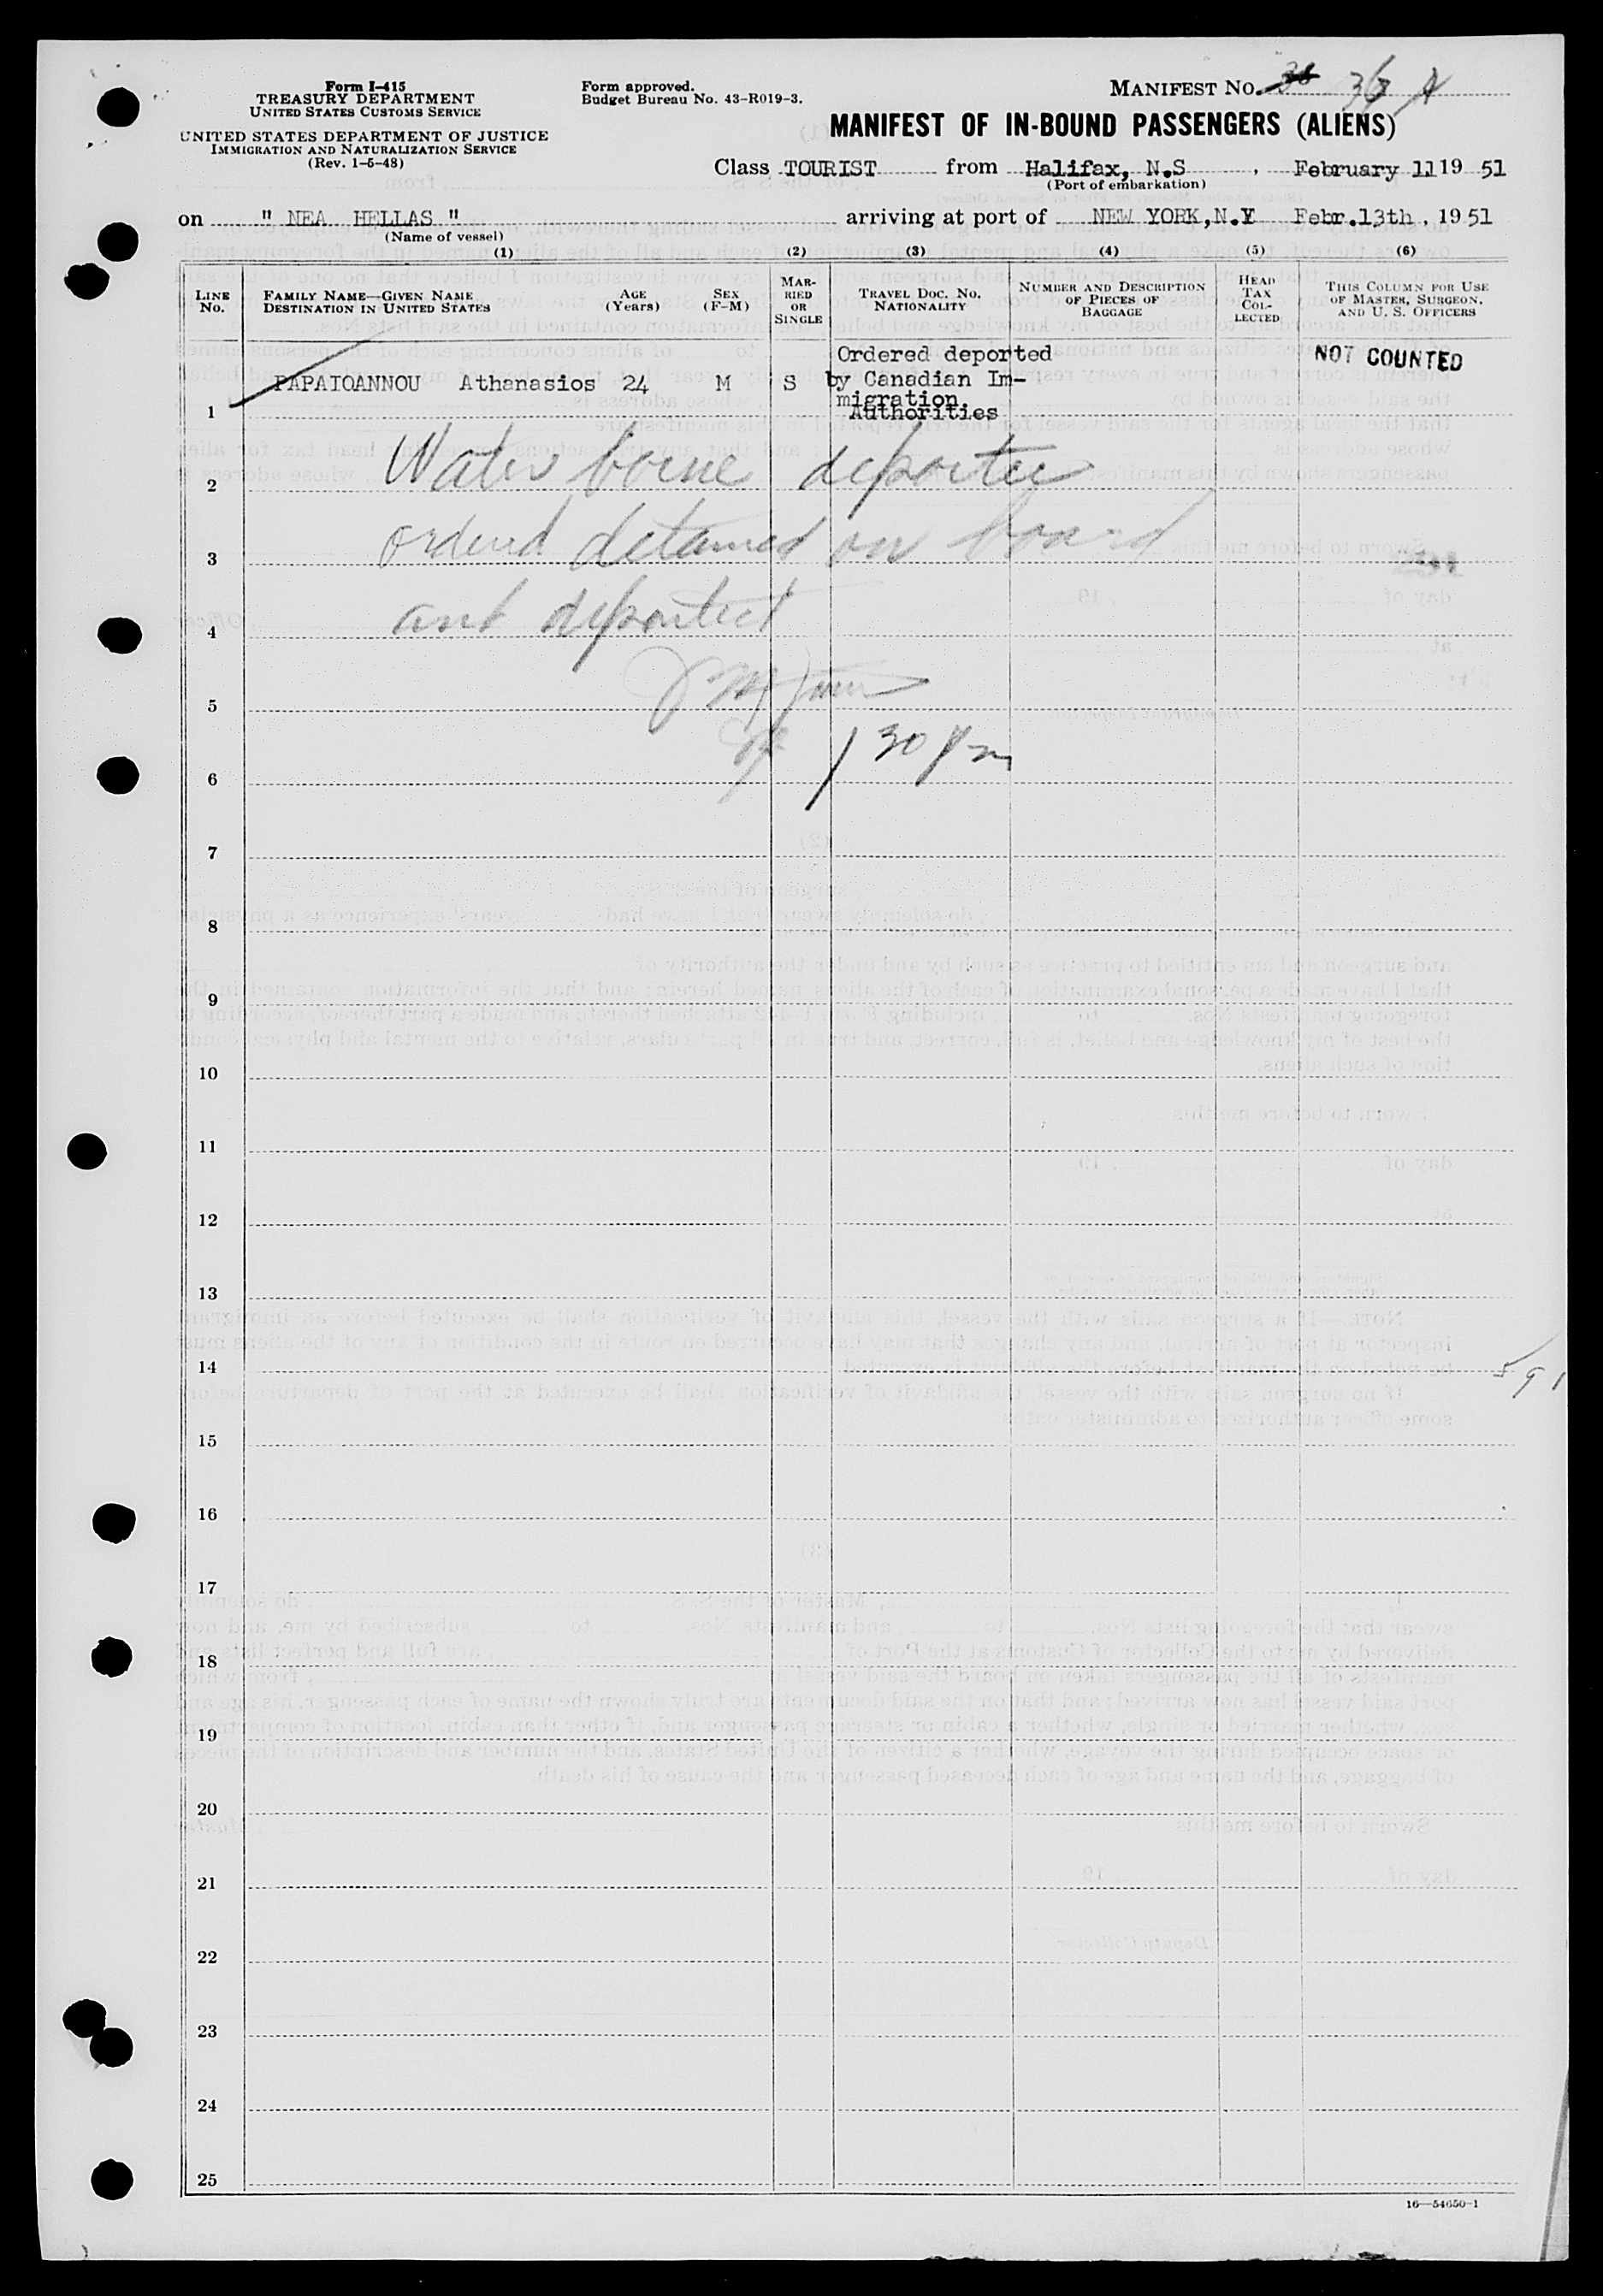 Form I-415
TREASURY DEPARTMENT
UNITED STATES CUSTOMS SERVICE
UNITED STATES DEPARTMENT OF JUSTICE
IMMIGRATION AND NATURALIZATION SERVICE
(Rev. 1-5-48)
Form approved.
Budget Bureau No. 43-R019-3.
MANIFEST NO. 36 A
MANIFEST OF IN-BOUND PASSENGERS (ALIENS)
Class TOURIST from Halifax, N.S , February 11 19 51
(Port of embarkation)
on " NEA HELLAS " arriving at port of NEW YORK, N.Y Febr.13th , 19 51
(Name of vessel)
(1) (2) (3) (4) (5) (6)
LINE No.
FAMILY NAME—GIVEN NAME
DESTINATION IN UNITED STATES
AGE (Years)
SEX (F-M)
MARRIED OR SINGLE
TRAVEL DOC. NO. NATIONALITY
NUMBER AND DESCRIPTION OF PIECES OF BAGGAGE
HEAD TAX COLLECTED
THIS COLUMN FOR USE OF MASTER, SURGEON, AND U. S. OFFICERS
Ordered deported
NOT COUNTED
PAPAIOANNOU Athanasios 24 M S by Canadian Im-
migration
1 Authorities
2 Water borne deportee
3 ordered detained on board
4 and deported
5
6 1 30 pm
7
8
9
10
11
12
13
14 591
15
16
17
18
19
20
21
22
23
24
25
16—54650-1